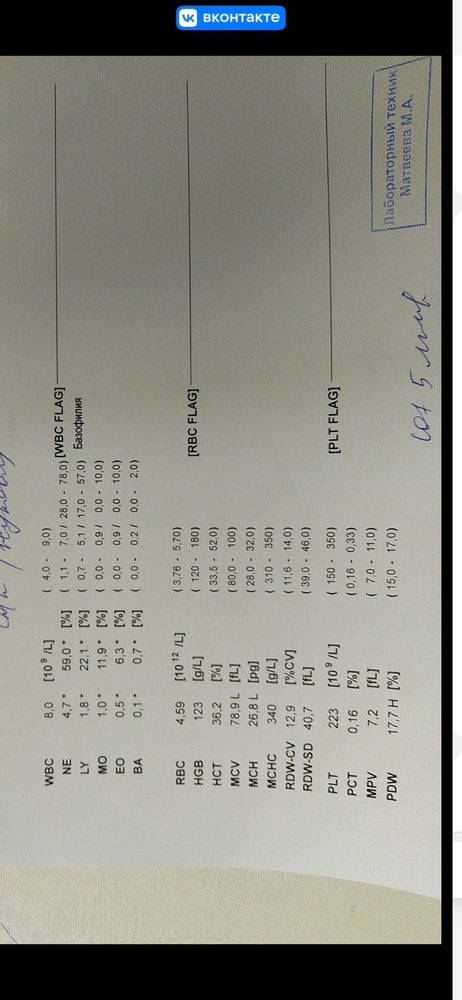 вконтакте
WBC 8,0 [10⁹ /L] ( 4,0 - 9,0) [WBC FLAG]
NE 4,7 * 59,0 * [%] ( 1,1 - 7,0 / 28,0 - 78,0) Базофилия
LY 1,8 * 22,1 * [%] ( 0,7 - 5,1 / 17,0 - 57,0)
MO 1,0 * 11,9 * [%] ( 0,0 - 0,9 / 0,0 - 10,0)
EO 0,5 * 6,3 * [%] ( 0,0 - 0,9 / 0,0 - 10,0)
BA 0,1 * 0,7 * [%] ( 0,0 - 0,2 / 0,0 - 2,0)
RBC 4,59 [10¹² /L] ( 3,76 - 5,70) [RBC FLAG]
HGB 123 [g/L] ( 120 - 180)
HCT 36,2 [%] ( 33,5 - 52,0)
MCV 78,9 L [fL] ( 80,0 - 100)
MCH 26,8 L [pg] ( 28,0 - 32,0)
MCHC 340 [g/L] ( 310 - 350)
RDW-CV 12,9 [%CV] ( 11,6 - 14,0)
RDW-SD 40,7 [fL] ( 39,0 - 46,0)
PLT 223 [10⁹ /L] ( 150 - 350) [PLT FLAG]
PCT 0,16 [%] ( 0,16 - 0,33)
MPV 7,2 [fL] ( 7,0 - 11,0)
PDW 17,7 H [%] ( 15,0 - 17,0)
Лабораторный техник
Матвеева М.А.
соэ 5 мм/ч